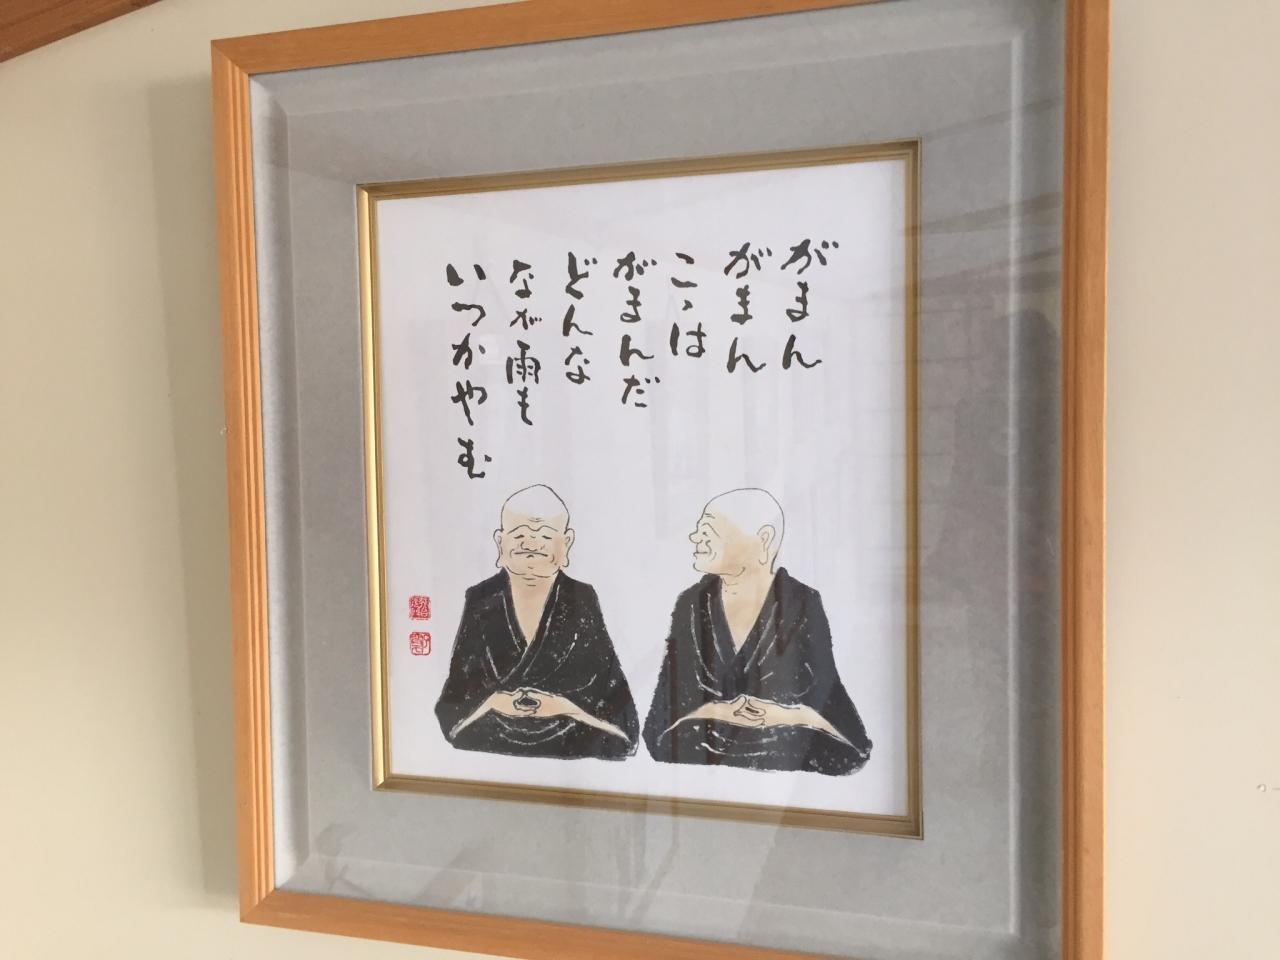 がまん
がまん
こゝは
がまんだ
どんな
なが雨も
いつかやむ